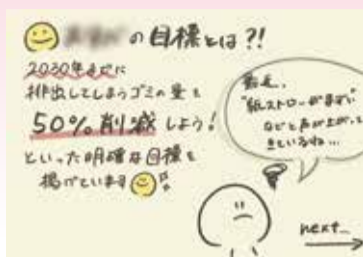 の目標とは?!
2030年までに
排出してしまうゴミの量を
50%削減しよう!
といった明確な目標を
掲げています
最近、
"紙ストローがまずい"
などと声が上がって
きているね...
next...